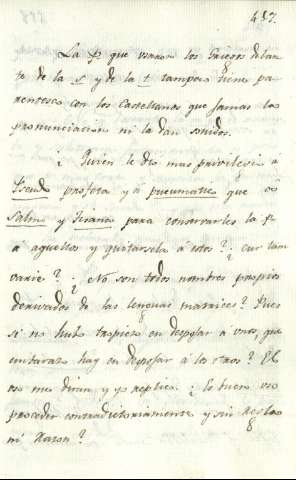 457.
La p que usaron los Griegos delan
te de la s y de la t tampoco tiene pa
rentesco con los Castellanos que jamas los
pronunciaron ni la dan sonidos.
¿Quien le dio mas privilegio á
Pseudo profeta y á pneumatica que á
Salmo y Tisana para conservarles la p
á aquellos y quitarsela á estos? ¿Cur tam
varie? ¿No son todos nombres propios
derivados de las lenguas matrices? Pues
si no hubo tropiezo en despojar á unos, que
embarazo hay en despojar á los otros? El
uso me diran y yo replico ¿es buen uso
proceder contradictoriamente y sin reglas
ni razon?